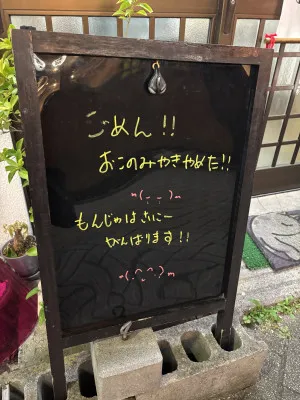 ごめん!!
おこのみやきやめた!!
m(_ _)m
もんじゃはさいこー
がんばります!!
m(^^)m